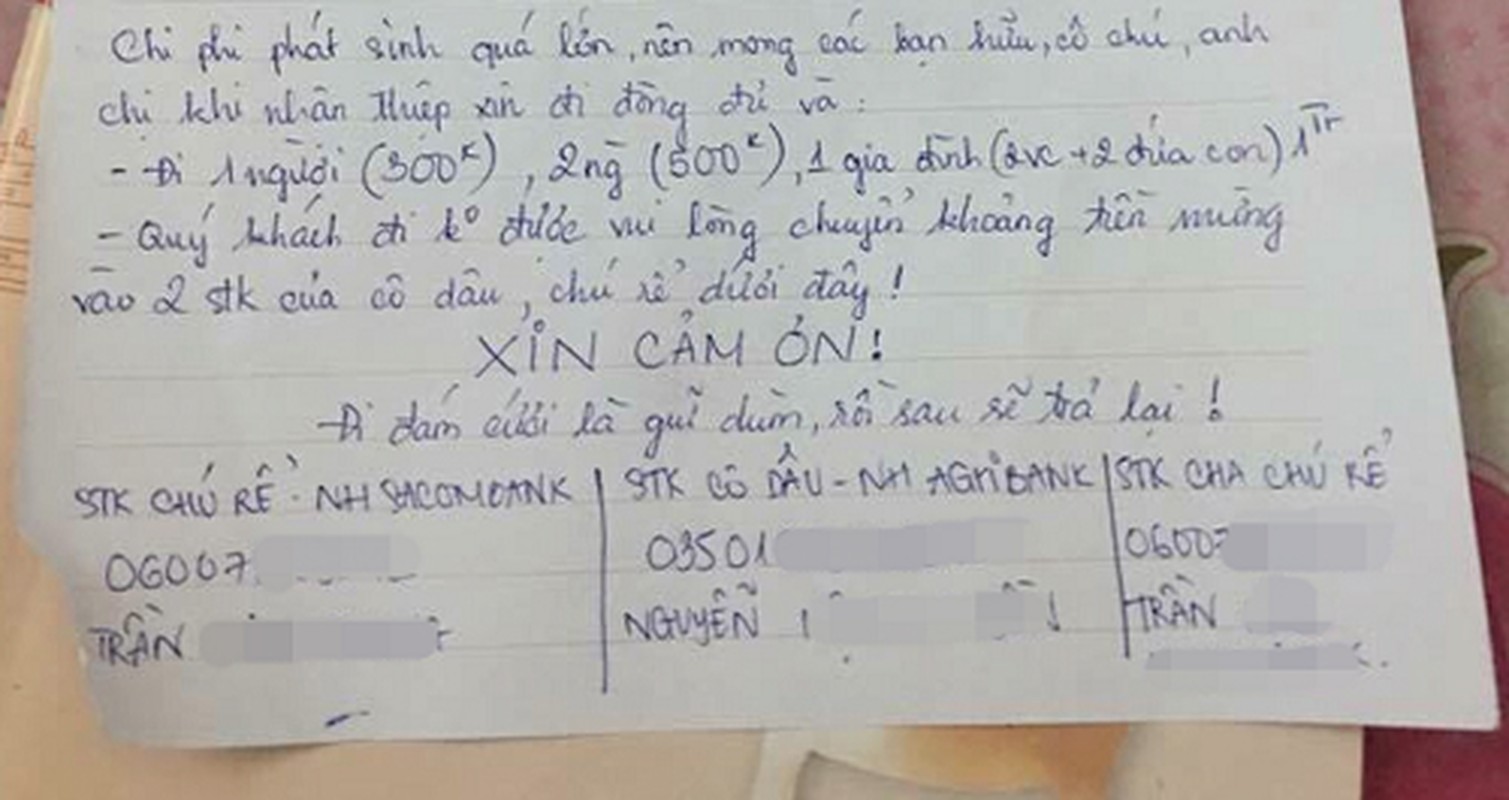 Chi phí phát sinh quá lớn, nên mong các bạn hữu, cô chú, anh
chị khi nhận thiệp xin đi đông đủ và:
- Đi 1 người (300K), 2ng (500K), 1 gia đình (2vc + 2 đứa con) 1Tr
- Quý khách đi k° được vui lòng chuyển khoảng tiền mừng
vào 2 stk của cô dâu, chú rể dưới đây!
XIN CẢM ƠN!
Đi đám cưới là gửi dùm, rồi sau sẽ trả lại!
STK CHÚ RỂ - NH SACOMBANK | STK CÔ DÂU - NH AGRIBANK | STK CHA CHÚ RỂ
06007 03501 06007
TRẦN NGUYỄN TRẦN